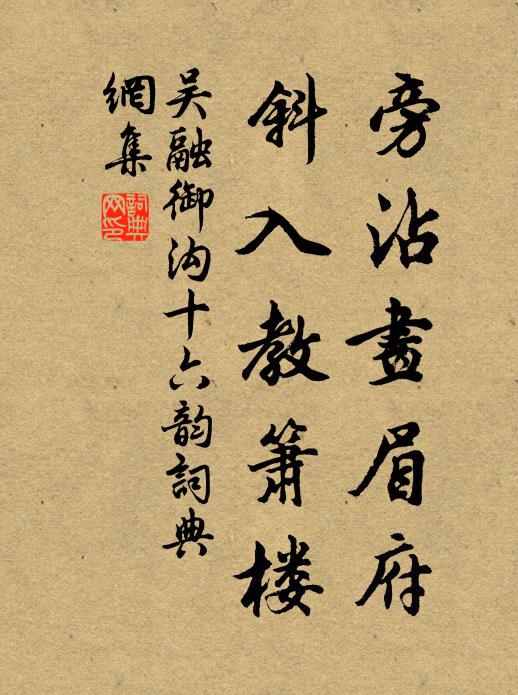 旁沾畫眉府
斜入教簫楼
吴融御沟十六韵詞典
網集
詞典
网印